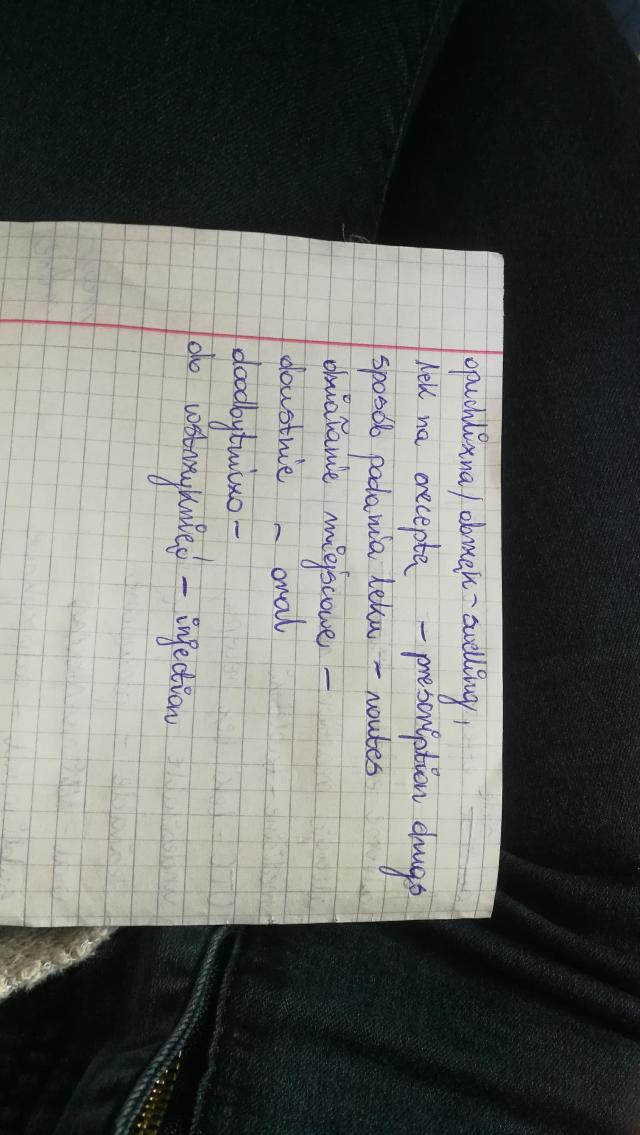 opuchlizna / obrzęk - swelling,
lek na receptę - prescription drugs
sposób podania leku - routes
działanie miejscowe -
doustnie - oral
doodbytniczo -
do wstrzyknięć - injection